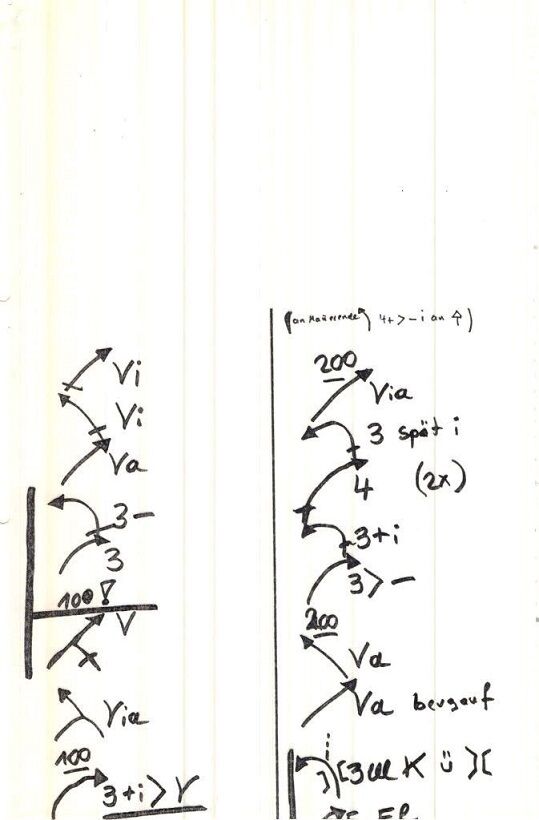 Vi
Vi
Va
3-
3
100!
V
Via
100
3+i>V
(an Mauerende) 4+>-i an
200
Via
3 spät i
4 (2x)
3+i
3>-
200
Va
Va bergauf
i
[3 K ü][